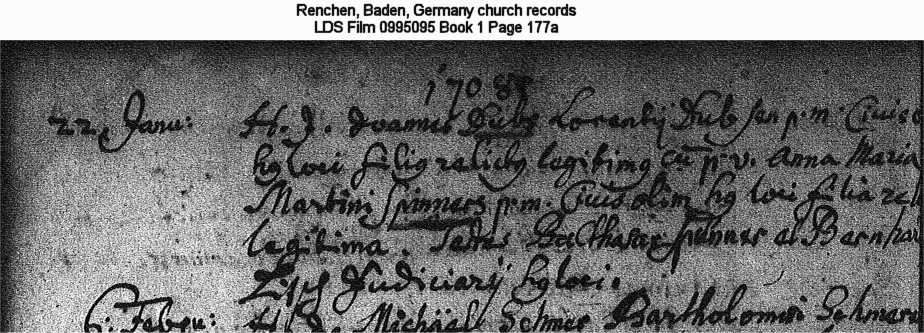 Renchen, Baden, Germany church records
LDS Film 0995095 Book 1 Page 177a
1708
22. Janu: H. J. Joannes Dubs Lorentij Dub sen p.m. Civis
hg loci filig relictg legitimg cu p.v. Anna Maria
Martini Spinners p.m. Civis olim hg loci filia rel
legitima. Testes Balthasar Spinner et Bernhar
Judiciarij hg loci.
6. Febru: H. J. Michäel Bartholomei